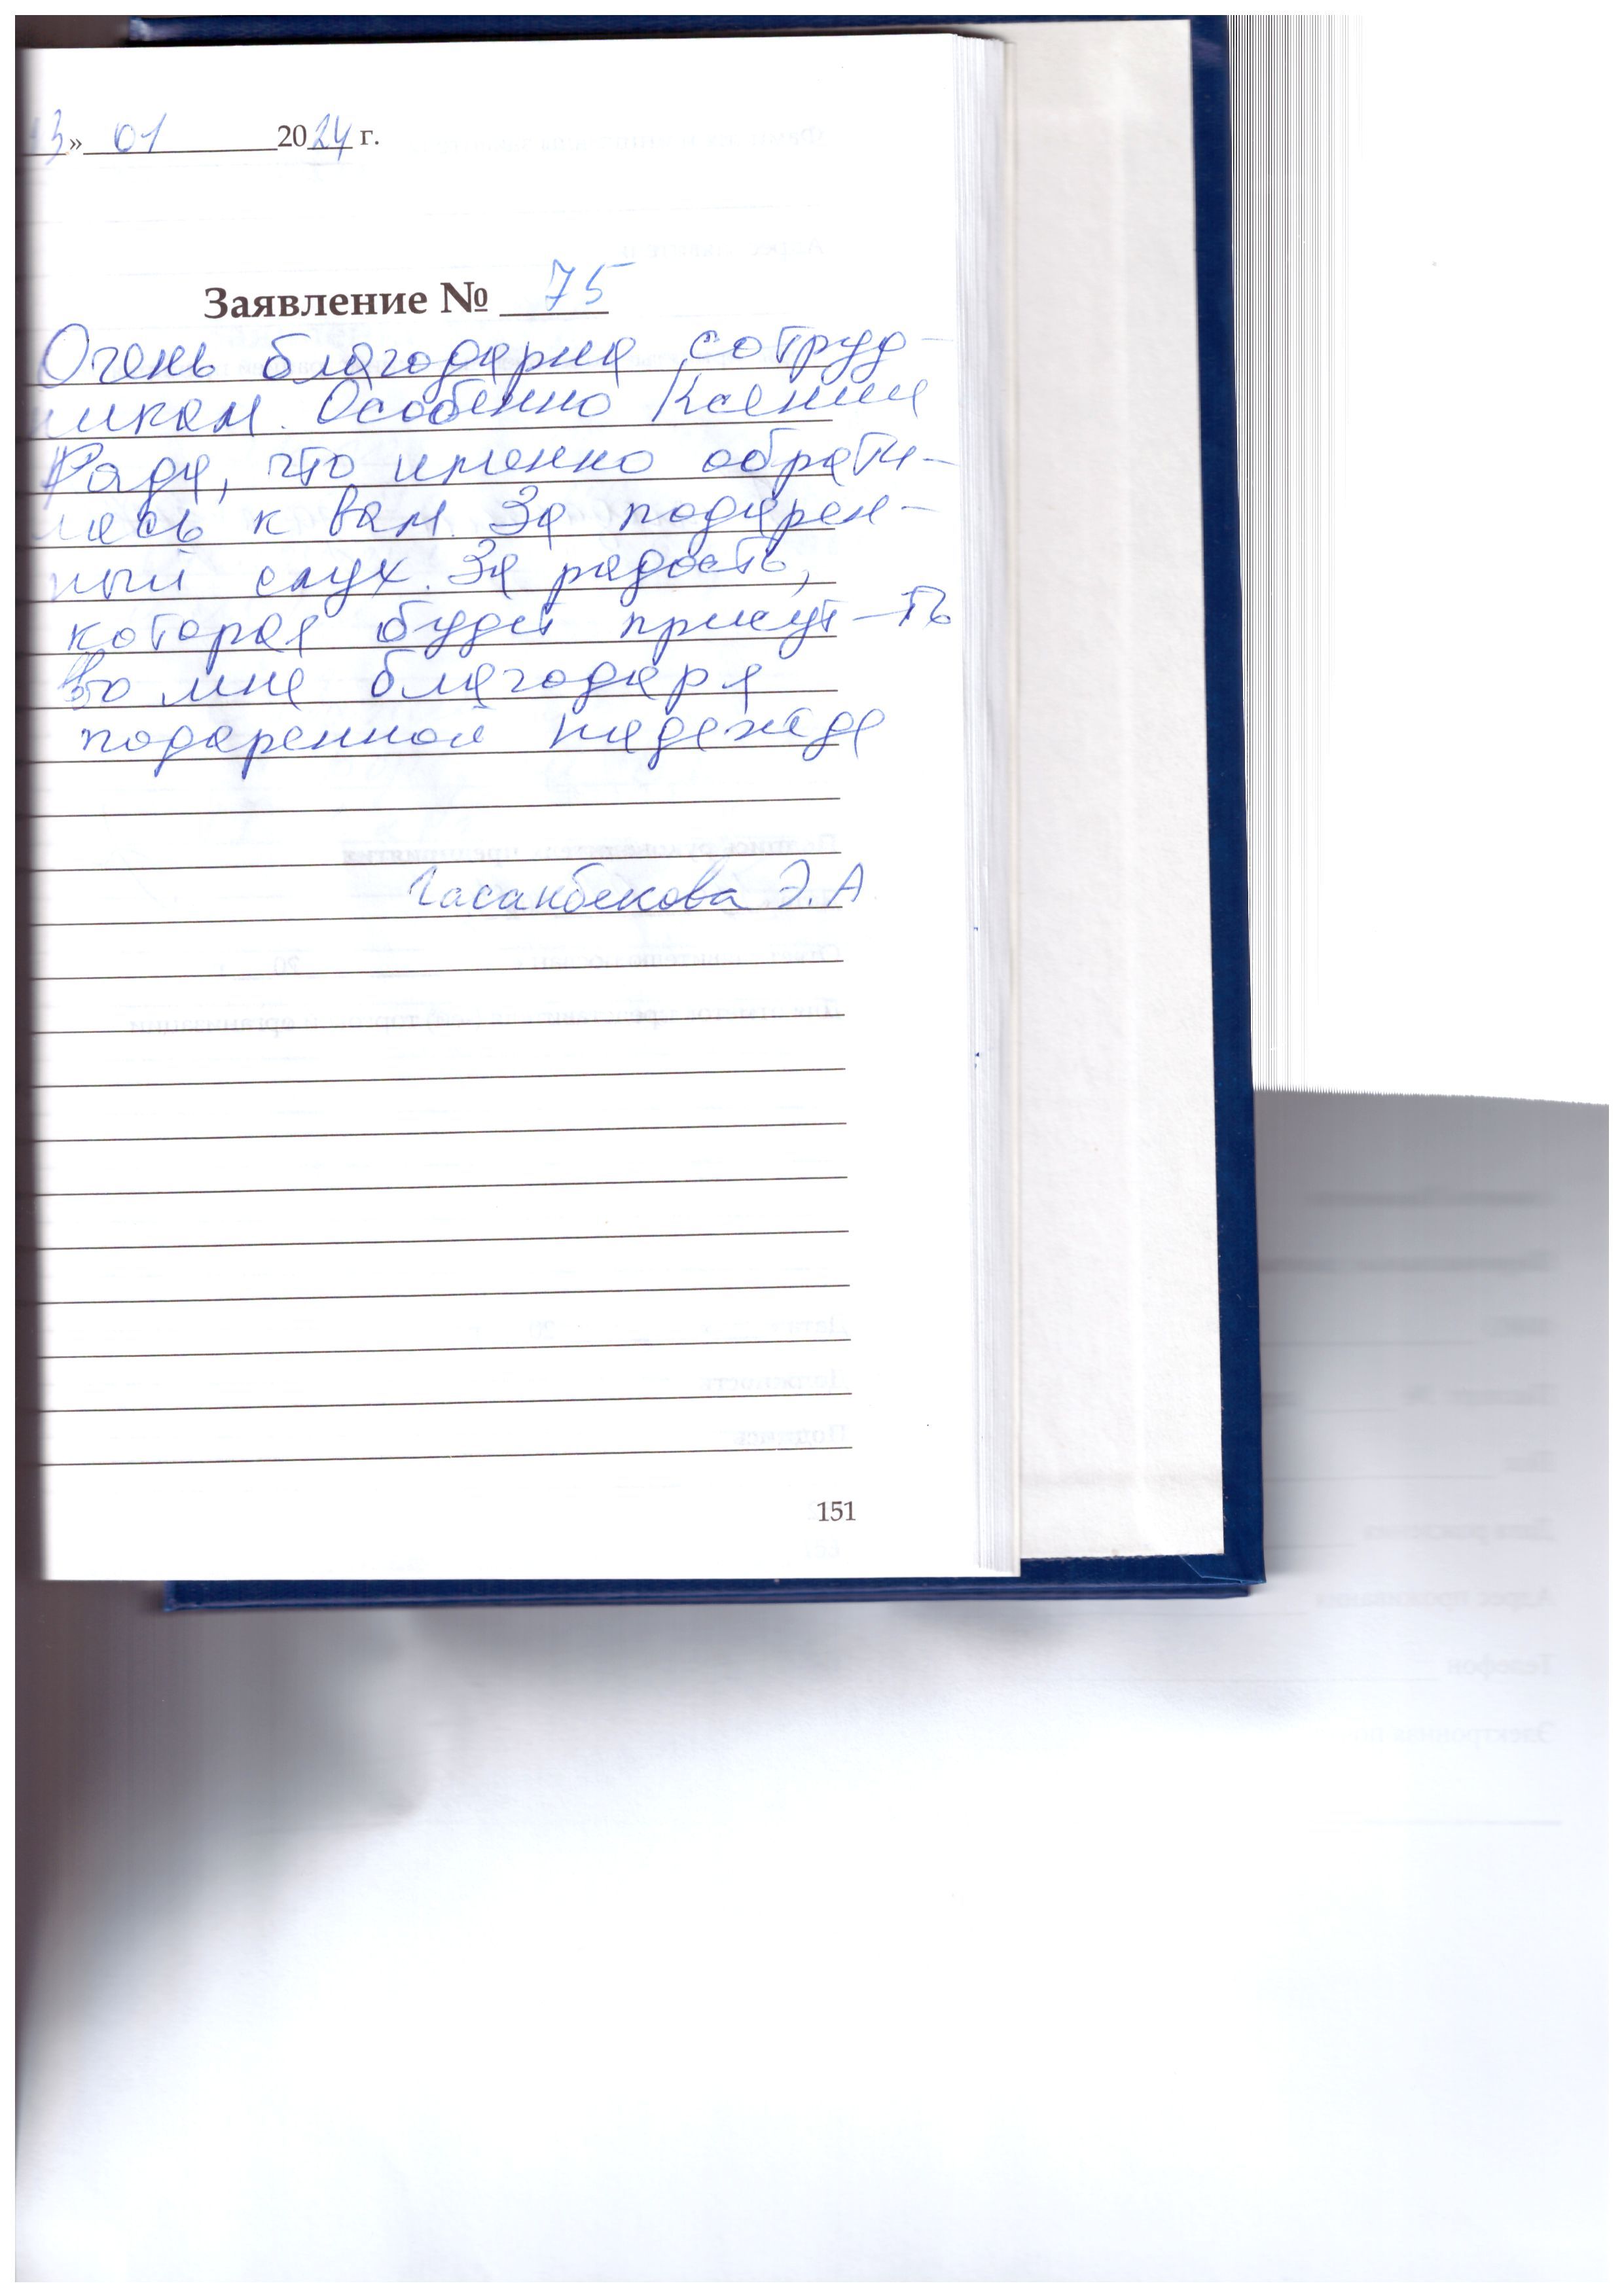 13» 01 2024 г.
Заявление № 75
Очень благодарна сотруд-
никам. Особенно Ксении
Рада, что именно обрати-
лась к вам. За подарен-
ный слух. За радость,
которая будет присут-ть
во мне благодаря
подаренной надежде
Гасанбекова Э.А
151